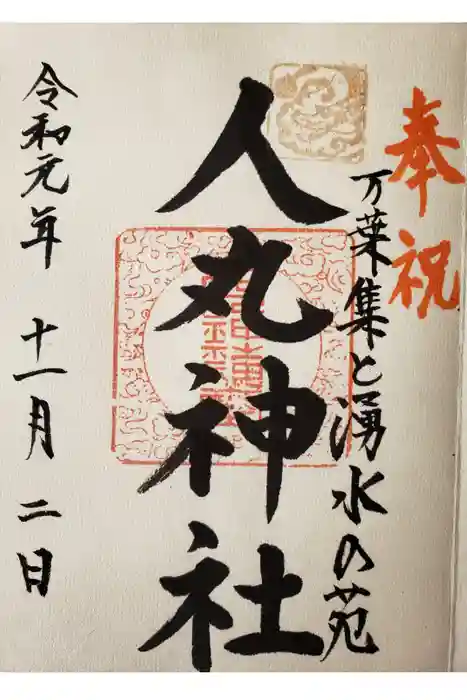 奉祝
万葉集と湧水の苑
人丸神社
令和元年 十一月二日